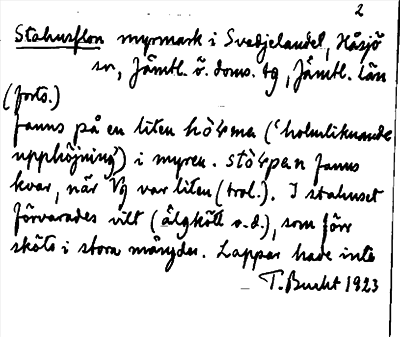 2
Stahusflon myrmark i Svedjelandet, Håsjö
sn, Jämtl. ö. doms. tg, Jämtl. län
(forts.)
Fanns på en liten hò4ma ('holmliknande
upphöjning') i myren. stò4pan fanns
kvar, när Vg var liten (trol.). I stahuset
förvarades vilt (älgkött o.d.), som förr
sköts i stora mängder. Lappar hade inte
T. Bucht 1923